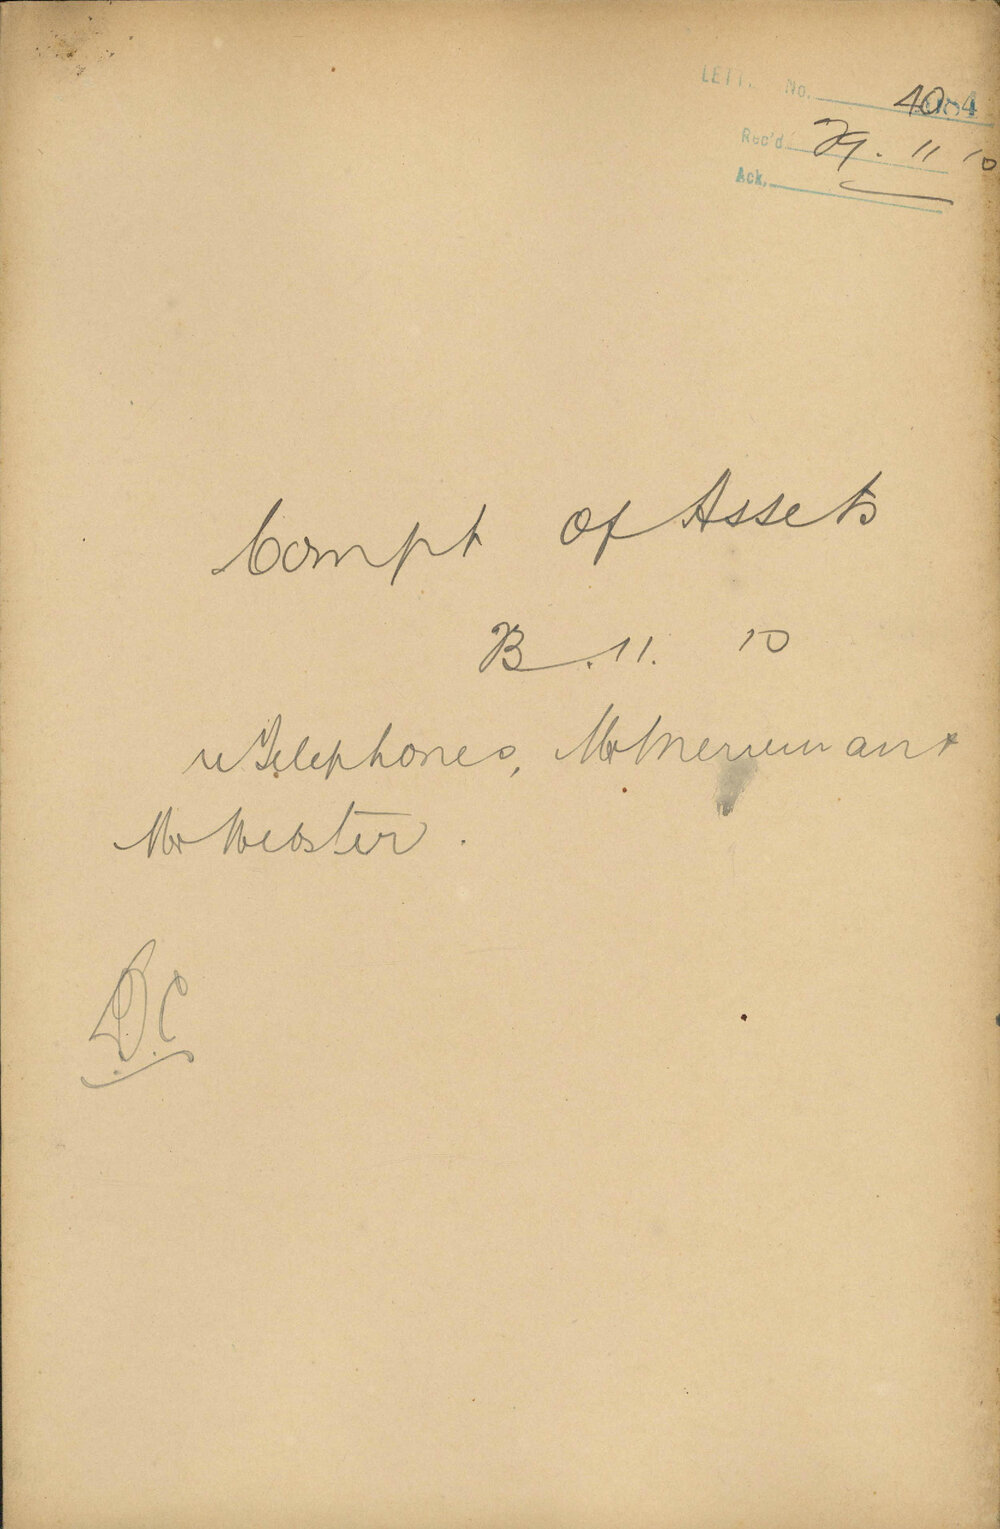 LETT. No. 4084
Rec'd. 29. 11 10
Ack.
Compt of Assets
B. 11. 10
re Telephones, Mr Merriman &
Mr Webster.
D.C